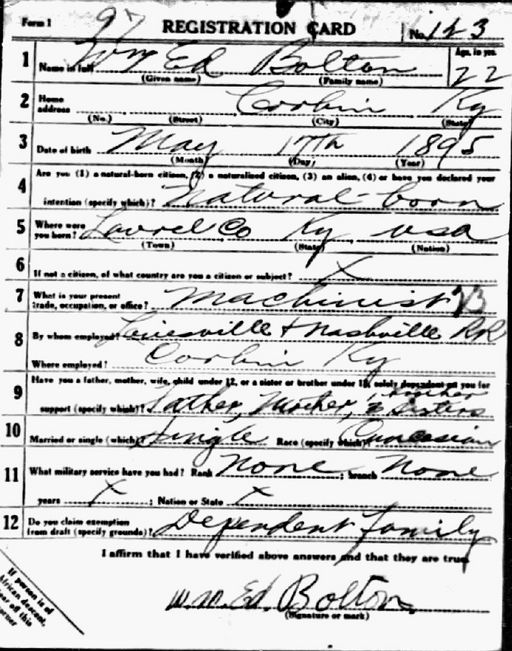 Form 1 97 REGISTRATION CARD No. 143
1 Name in full Wm Ed Bolton Age, in yrs. 22
(Given name) (Family name)
2 Home address Corbin Ky
(No.) (Street) (City) (State)
3 Date of birth May 17th 1895
(Month) (Day) (Year)
4 Are you (1) a natural-born citizen, (2) a naturalized citizen, (3) an alien, (4) or have you declared your
intention (specify which)? Natural born
5 Where were you born? Laurel Co Ky usa
(Town) (State) (Nation)
6 If not a citizen, of what country are you a citizen or subject? X
7 What is your present trade, occupation, or office? Machinist 23
8 By whom employed? Louisville & Nashville RR
Where employed? Corbin Ky
9 Have you a father, mother, wife, child under 12, or a sister or brother under 12, solely dependent on you for
support (specify which)? Father, Mother, 1 brother Sisters
10 Married or single (which)? Single Race (specify which)? Caucasian
11 What military service have you had? Rank None ; branch None
years X ; Nation or State X
12 Do you claim exemption from draft (specify grounds)? Dependent family
I affirm that I have verified above answers and that they are true.
Wm. Ed. Bolton
(Signature or mark)
If person is of
African descent,
off this
corner